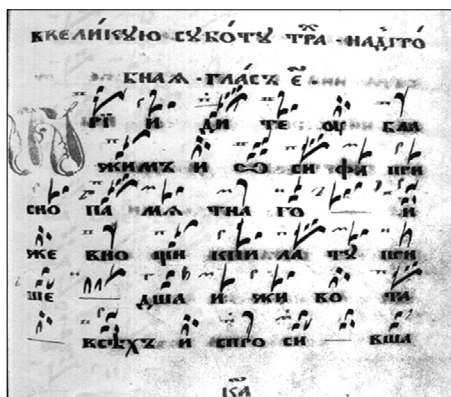 ввели́кую субо́ту ст҃ра · надгро́
бнаѧ · гла́съ е҃ ·
П рїи и ди те оу бла
жимъ и ѡ си фа при
сно па мѧ тна го и
же вно щи кпи ла ту при
ше дша и жи во та
всѣхъ и спро си вша
к҃а